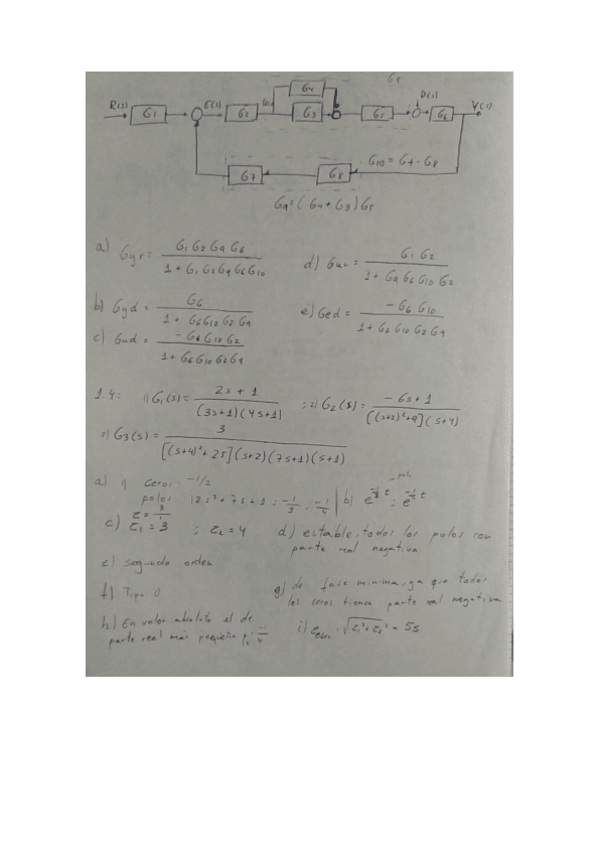 G9
R(s) G1 E(s) G2 G4 G3 G5 D(s) G6 Y(s)
G7 G8 G10 = G7 · G8
G9 = (G4 + G3) G5
a) Gyr = G1 G2 G9 G6 / 1 + G1 G2 G9 G6 G10
d) Gur = G1 G2 / 1 + G9 G6 G10 G2
b) Gyd = G6 / 1 + G6 G10 G2 G9
e) Ged = - G6 G10 / 1 + G6 G10 G2 G9
c) Gud = - G6 G10 G2 / 1 + G6 G10 G2 G9
1.4: 1) G1(s) = 2s + 1 / (3s+1)(4s+1) ; 2) G2(s) = - 6s + 1 / [(s+2)²+9](s+4)
3) G3(s) = 3 / [(s+4)² + 25](s+2)(7s+1)(s+1)
a) 1) ceros: -1/2
polos: 12s² + 7s + 1 ; -1/3 , -1/4 | b) e^(-1/3 t) ; e^(-1/4 t)
c) τ1 = 3 ; τ2 = 4 d) estable, todos los polos con
parte real negativa
e) segundo orden
f) Tipo 0 g) de fase mínima, ya que todos
los ceros tienen parte real negativa
h) En valor absoluto el de
parte real más pequeña
i) = √τ1² + τ2² = 5s